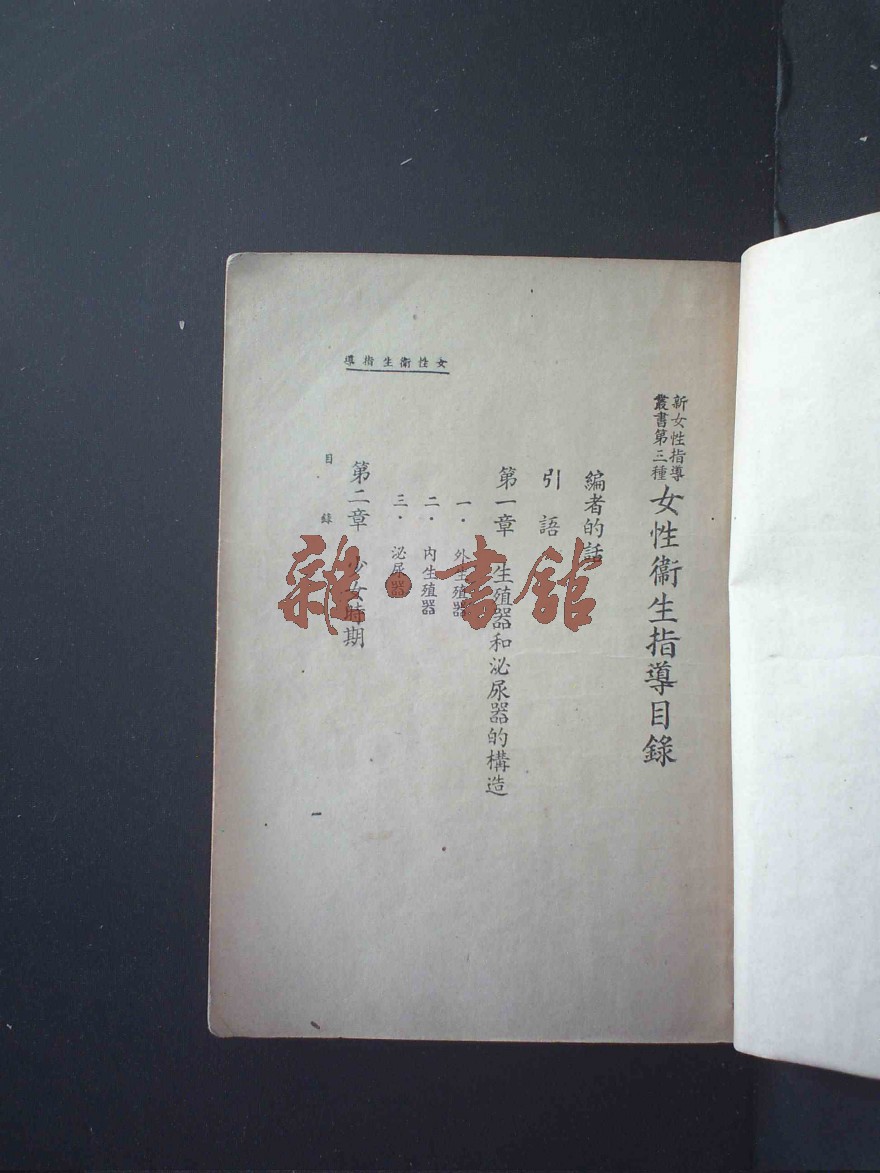 新女性指導
叢書第三種
女性衞生指導目錄
編者的話
引語
第一章 生殖器和泌尿器的構造
一・外生殖器
二・內生殖器
三・泌尿器
第二章 少女時期
女性衞生指導
目錄
一
雜・書館